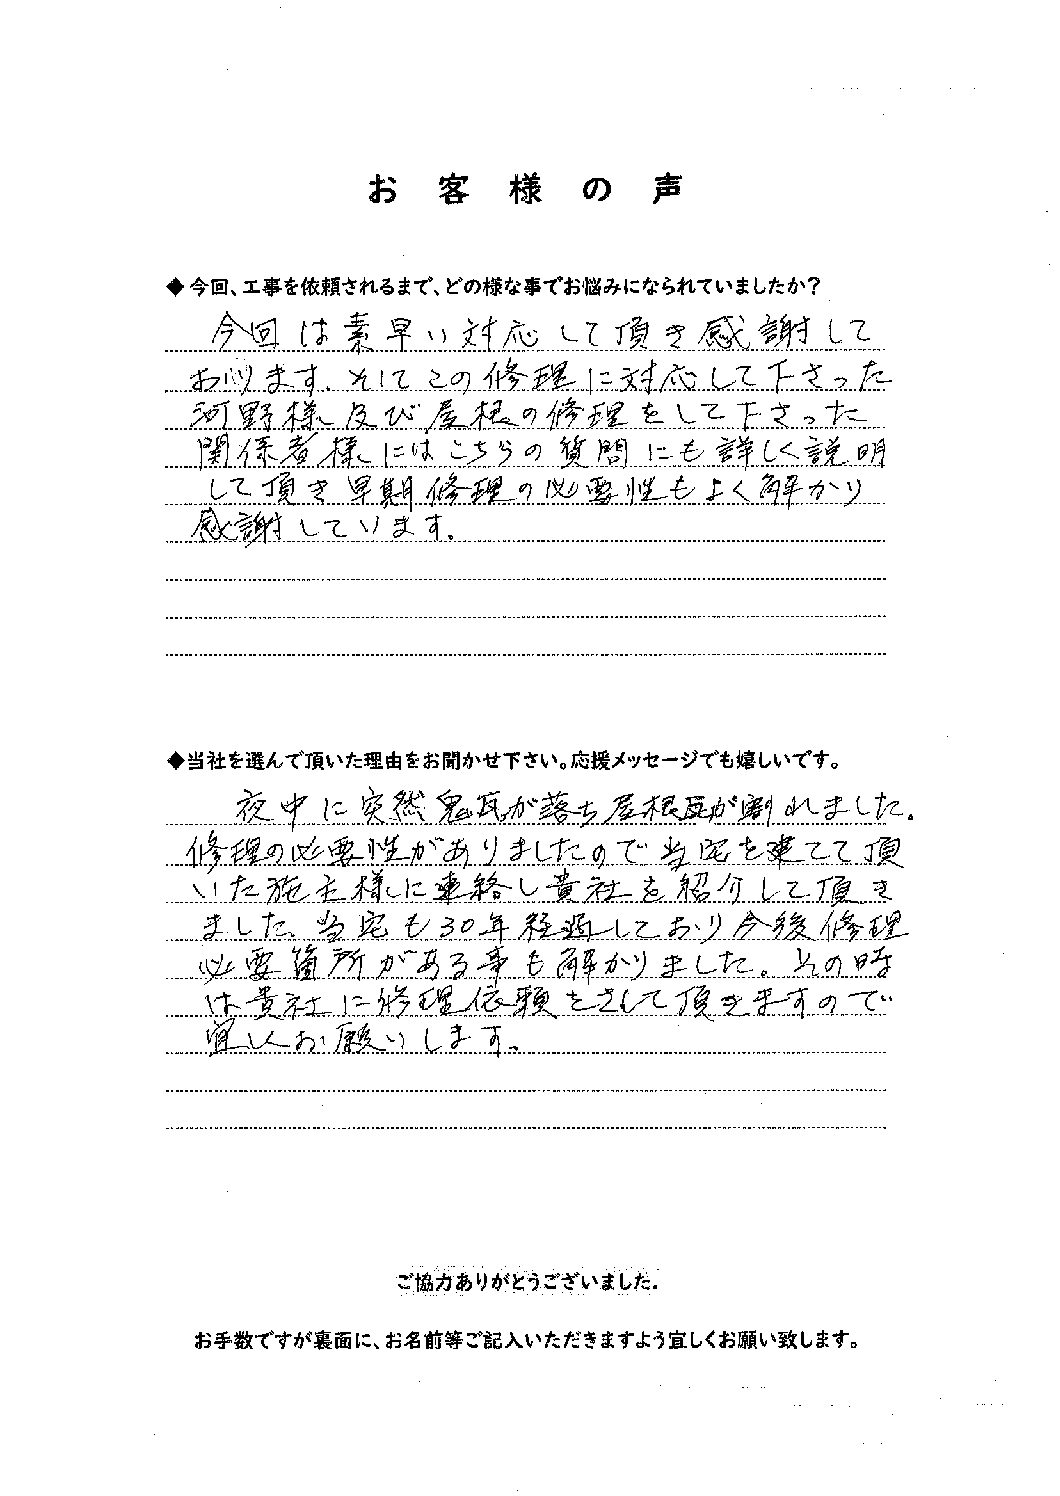 お客様の声
◆今回、工事を依頼されるまで、どの様な事でお悩みになられていましたか？
今回は素早い対応して頂き感謝して
おります。そしてこの修理に対応して下さった
河野様及び屋根の修理をして下さった
関係者様にはこちらの質問にも詳しく説明
して頂き早期修理の必要性もよく解かり
感謝しています。
◆当社を選んで頂いた理由をお聞かせ下さい。応援メッセージでも嬉しいです。
夜中に突然鬼瓦が落ち屋根瓦が割れました。
修理の必要性がありましたので当宅を建てて頂
いた施主様に連絡し貴社を紹介して頂き
ました。当宅も30年経過しており今後修理
必要箇所がある事も解かりました。その時
は貴社に修理依頼をさして頂きますので
宜しくお願いします。
ご協力ありがとうございました。
お手数ですが裏面に、お名前等ご記入いただきますよう宜しくお願い致します。